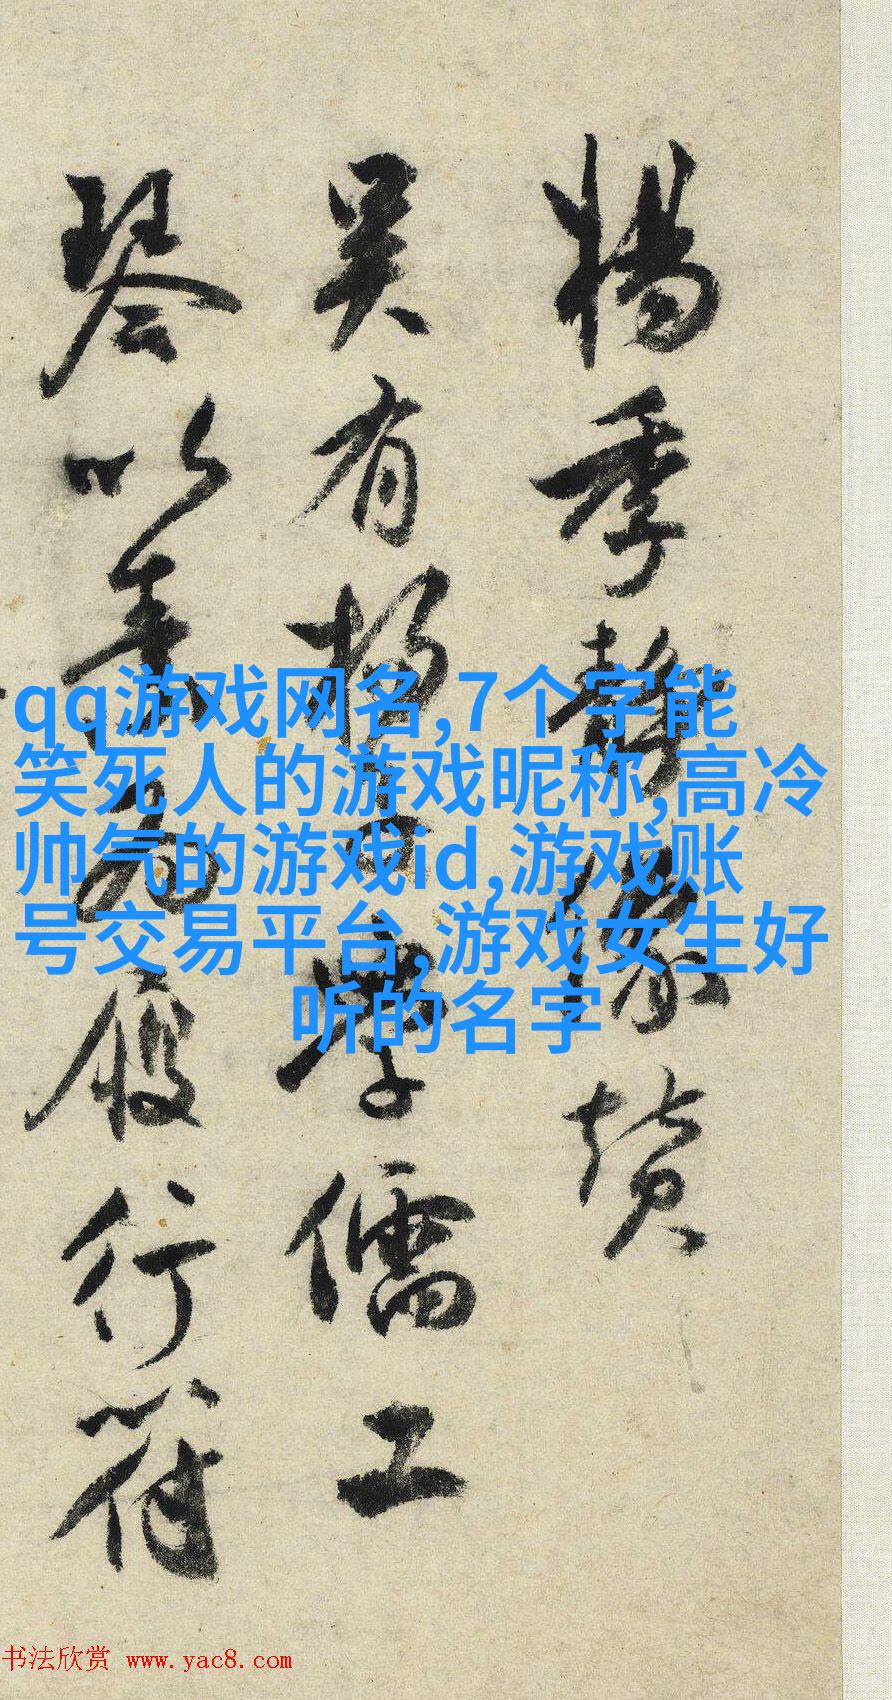 楊季靜像贊
吴有楊子學儒工
琴以為履行符
qq游戏网名,7个字能
笑死人的游戏昵称,高冷
帅气的游戏id,游戏账
号交易平台,游戏女生好
听的名字
书法欣赏 www.yac8.com